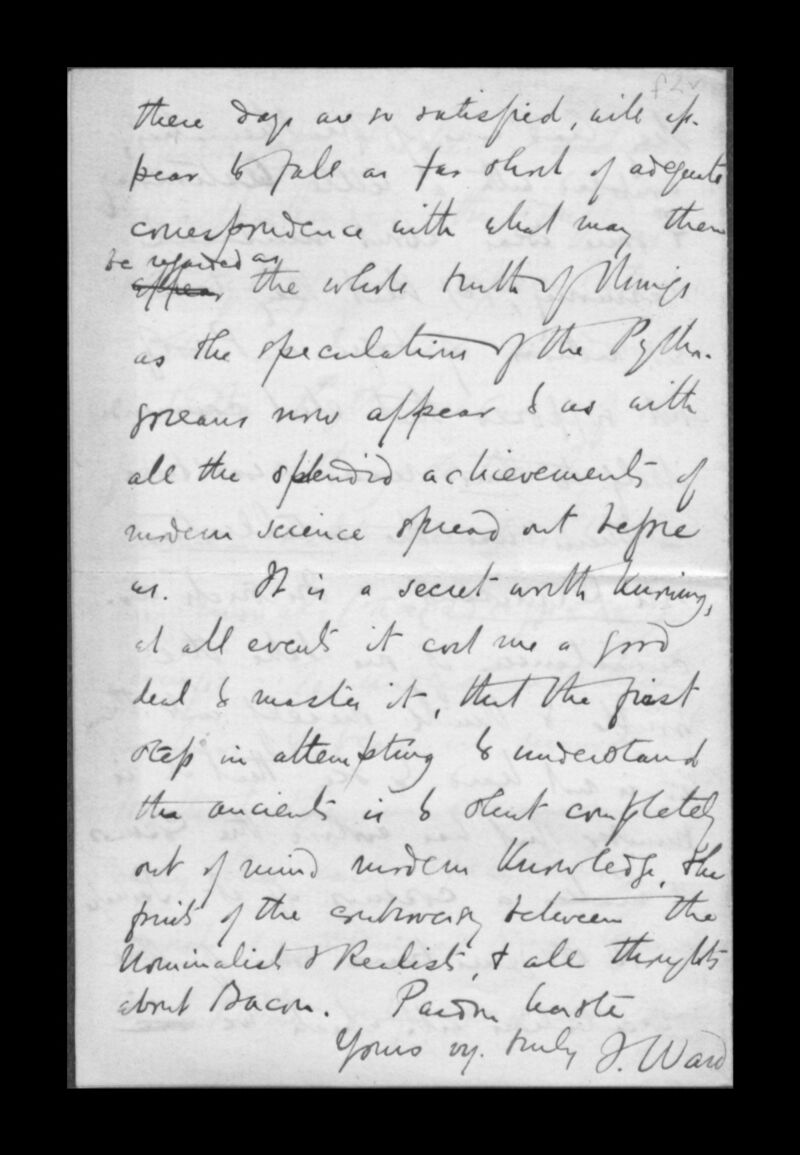 f2v
these days are so satisfied, will ap-
pear to fall as far short of adequate
correspondence with what may then
be regarded as
appear the whole truth of things
as the speculations of the Pytha-
goreans now appear to us with
all the splendid achievements of
modern science spread out before
us. It is a secret worth knowing,
at all events it cost me a good
deal to master it, that the first
step in attempting to understand
the ancients is to shut completely
out of mind modern knowledge, the
fruits of the controversy between the
Nominalists & Realists, & all thoughts
about Bacon. Pardon haste
Yours vy. truly J. Ward